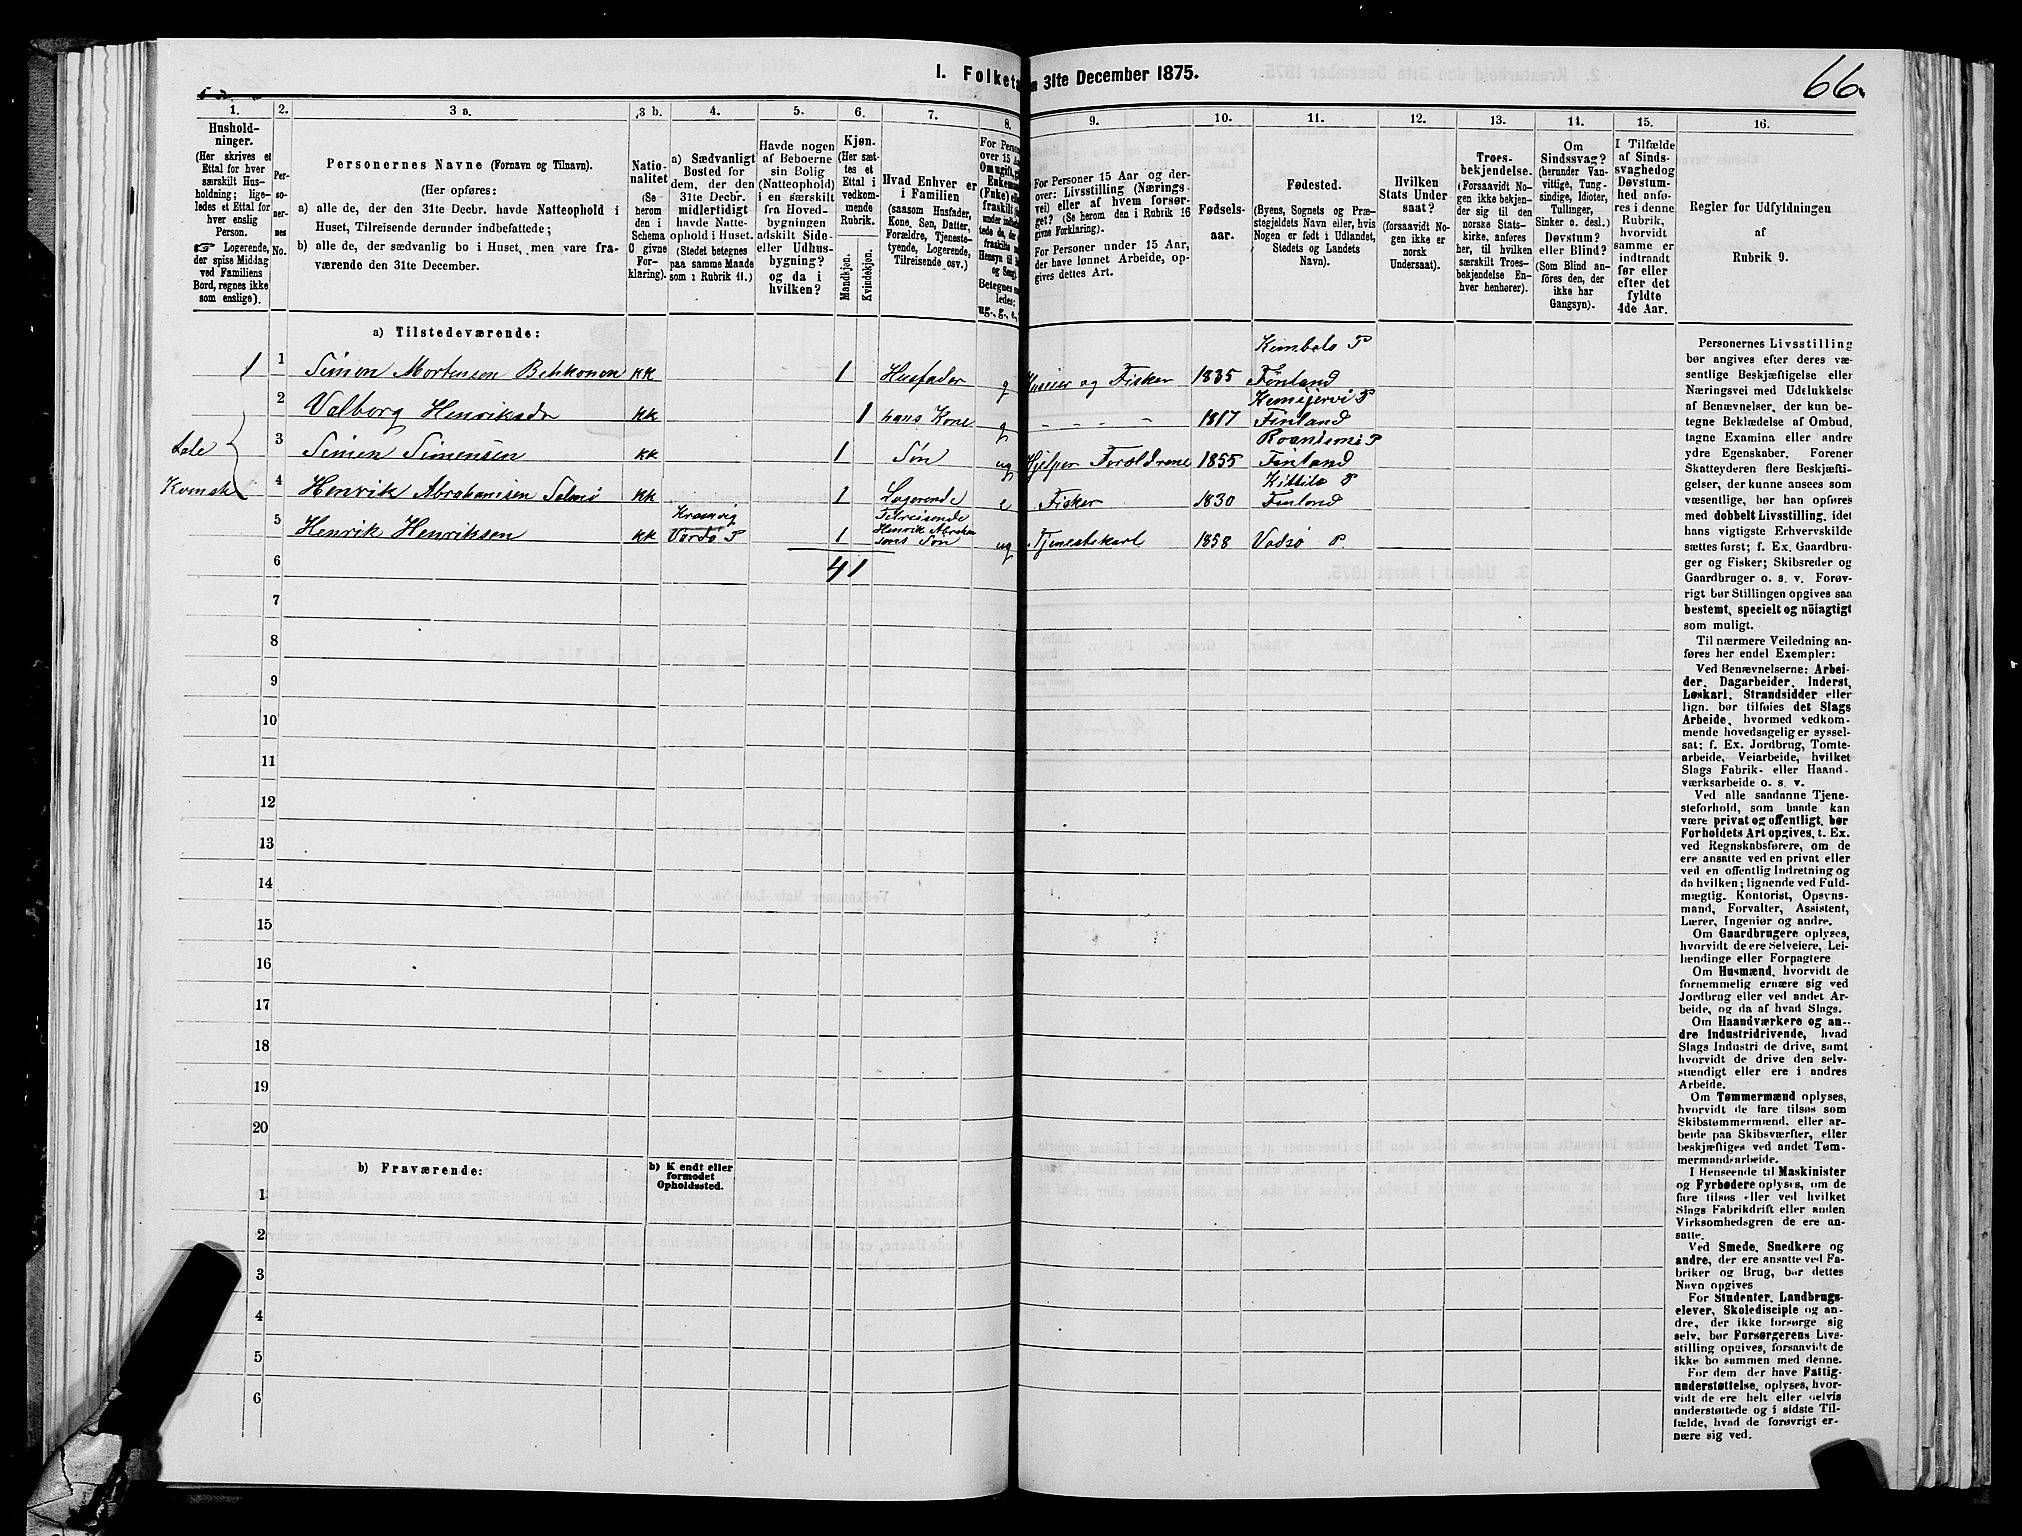 I. Folketæ
n 31te December 1875.
66.
1.
Hushold-
ninger.
(Her skrives et
Ettal for hver
særskilt Hus-
holdning; lige-
ledes et Ettal for
hver enslig
Person.
☞ Logerende,
der spise Middag
ved Familiens
Bord, regnes ikke
som enslige).
2.
Per-
so-
ner-
nes
No.
3 a.
Personernes Navne (Fornavn og Tilnavn).
(Her opføres:
a) alle de, der den 31te Decbr. havde Natteophold i
Huset, Tilreisende derunder indbefattede;
b) alle de, der sædvanlig bo i Huset, men vare fra-
værende den 31te December.
3 b.
Natio-
nalitet
(Se
herom
den i
Schema
O givne
For-
klaring).
4.
a) Sædvanligt
Bosted for
dem, der den
31te Decbr.
midlertidigt
havde Natte-
ophold i Huset.
(Stedet betegnes
paa samme Maade
som i Rubrik 11.)
5.
Havde nogen
af Beboerne
sin Bolig
(Natteophold)
i en særskilt
fra Hoved-
bygningen
adskilt Side-
eller Udhus-
bygning?
og da i
hvilken?
6.
Kjøn.
(Her sæt-
tes et
Ettal i
vedkom-
mende
Rubrik.
Mandkjøn.
Kvindekjøn.
7.
Hvad Enhver er
i Familien
(saasom Husfader,
Kone, Søn, Datter,
Forældre, Tjeneste-
tyende, Logerende,
Tilreisende osv.)
8.
For Person
over 15 Aa
Om ugift, gi
Enkema
(Enke) elle
fraskilt
Betegnes
ledes:
ug., g., e.,
9.
For Personer 15 Aar og der-
over: Livsstilling (Nærings-
vei) eller af hvem forsør-
get? (Se herom den i Rubrik 16
givne Forklaring).
For Personer under 15 Aar,
der have lønnet Arbeide, op-
gives dettes Art.
10.
Fødsels-
aar.
11.
Fødested.
(Byens, Sognets og Præ-
stegjeldets Navn eller, hvis
Nogen er født i Udlandet,
Stedets og Landets
Navn).
12.
Hvilken
Stats Under
saat?
(forsaavidt No-
gen ikke er
norsk
Undersaat).
13.
Troes-
bekjendelse.
(Forsaavidt No-
gen ikke bekjen-
der sig til den
norske Stats-
kirke, anføres
her, til hvilken
særskilt Troes-
bekjendelse En-
hver henhører).
14.
Om
Sindssvag?
(herunder Van-
vittige, Tung-
sindige, Idioter,
Tullinger,
Sinker o. desl.)
Døvstum?
eller Blind?
(Som Blind an-
føres den, der
ikke har
Gangsyn).
15.
I Tilfælde
af Sinds-
svaghed og
Døvstum-
hed anfø-
res i denne
Rubrik,
hvorvidt
samme er
indtraadt
før eller
efter det
fyldte
4de Aar.
16.
Regler for Udfyldningen
af
Rubrik 9.
a) Tilstedeværende:
1 1 Simon Mortensen kk 1 Husfader g Huseier og Fisker 1835 Kembele P Finland
2 Valborg Henriksdr kk 1 hans Kone g - - - - 1817 Kemijervi P Finland
Tale
3 Simon Simonsen kk 1 Søn ug Hjelper Foreldrene 1855 Roanismi P Finland
Kvensk
4 Henrik Abrahamsen kk 1 Logerende e Fisker 1830 Kittile P Finland
5 Henrik Henriksen kk Kramvig Vardø P 1 Tilreisende Henrik Abraham sens Søn ug Tjenestekarl 1858 Vadsø P.
6 4 1
7
8
9
10
11
12
13
14
15
16
17
18
19
20
b) Fraværende:
b) Kjendt eller
formodet
Opholdssted.
1
2
3
4
5
6
Personernes Livsstilling
bør angives efter deres væ-
sentlige Beskjæftigelse eller
Næringsvei med Udelukkelse
af Benævnelser, der kun be-
tegne Beklædelse af Ombud,
tagne Examina eller andre
ydre Egenskaber. Forener
Skatteyderen flere Beskjæfti-
gelser, der kunne ansees som
væsentlige, bør han opføres
med dobbelt Livsstilling, idet
hans vigtigste Erhvervskilde
sættes først; f. Ex. Gaardbru-
ger og Fisker; Skibsreder og
Gaardbruger o. s. v. Forøv-
rigt bør Stillingen opgives saa
bestemt, specielt og nöiagtigt
som muligt.
Til nærmere Veiledning an-
føres her endel Exempler:
Ved Benævnelserne: Arbei-
der, Dagarbeider, Inderst,
Løskarl, Strandsidder eller
lign. bør tilføies det Slags
Arbeide, hvormed vedkom-
mende hovedsagelig er syssel-
sat; f. Ex. Jordbrug, Tomte-
arbeide, Veiarbeide, hvilket
Slags Fabrik- eller Haand-
værksarbeide o. s. v.
Ved alle saadanne Tjene-
steforhold, som baade kan
være privat og offentligt, bør
Forholdets Art opgives, t. Ex.
ved Regnskabsførere, om de
ere ansatte ved en privat eller
ved en offentlig Indretning og
da hvilken; lignende ved Fuld-
mægtig, Kontorist, Opsyns-
mand, Forvalter, Assistent,
Lærer, Ingeniør og andre.
Om Gaardbrugere oplyses,
hvorvidt de ere Selveiere, Lei-
lændinge eller Forpagtere.
Om Husmænd, hvorvidt de
fornemmelig ernære sig ved
Jordbrug eller ved andet Ar-
beide, og da af hvad Slags.
Om Haandværkere og an-
dre Industridrivende, hvad
Slags Industri de drive, samt
hvorvidt de drive den selv-
stændigt eller ere i andres
Arbeide.
Om Tømmermænd oplyses,
hvorvidt de fare tilsøs som
Skibstømmermænd, eller ar-
beide paa Skibsværfter, eller
beskjæftiges ved andet Tøm-
mermandsarbeide.
I Henseende til Maskinister
og Fyrbødere oplyses, om de
fare tilsøs eller ved hvilket
Slags Fabrikdrift eller anden
Virksomhedsgren de ere an-
satte.
Ved Smede, Snedkere og
andre, der ere ansatte ved Fa-
briker og Brug, bør dettes
Navn opgives
For Studenter, Landbrugs-
elever, Skoledisciple og an-
dre, der ikke forsørge sig
selv, bør Forsørgerens Livs-
stilling opgives, forsaavidt de
ikke bo sammen med denne.
For dem, der have Fattig-
understøttelse, oplyses, hvor-
vidt de ere helt eller delvis
understøttede og i sidste Til-
fælde, hvad de forøvrigt er-
nære sig ved.